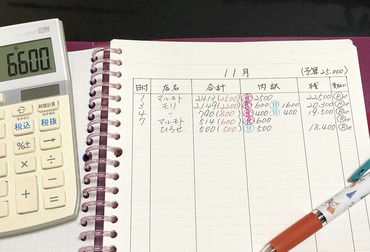 6600
時間計算
税込 税抜
11月 (予算25.000)
日付 店名 合計 内訳 残
1 マルモト 2413(2500) 食2500 22.500
3 モリ 2149(2200) 食600 日1600 20.300
4 〃 790(800) 食400 日400 19.500
7 マルモト 514(600) 食600
ひろせ 500(500) 日500 18.400